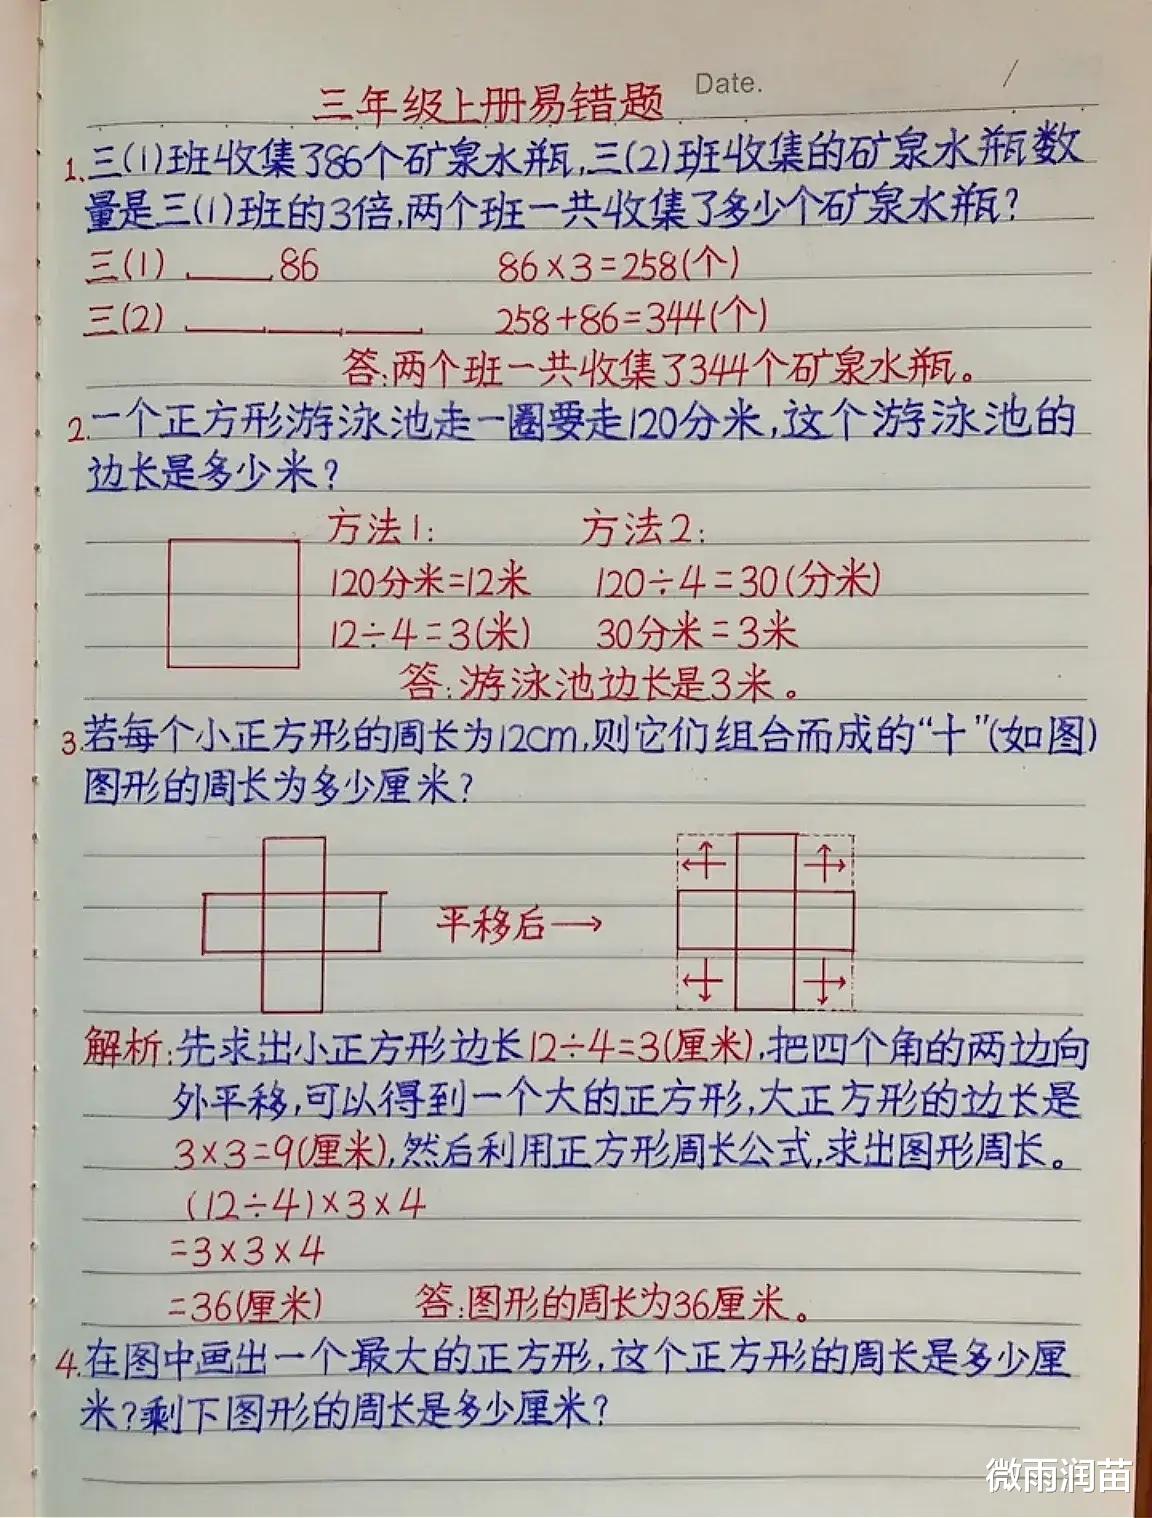 Date.
三年级上册易错题
1.三(1)班收集了86个矿泉水瓶,三(2)班收集的矿泉水瓶数
量是三(1)班的3倍,两个班一共收集了多少个矿泉水瓶?
三(1) 86 86×3=258(个)
三(2) 258+86=344(个)
答:两个班一共收集了344个矿泉水瓶。
2.一个正方形游泳池走一圈要走120分米,这个游泳池的
边长是多少米?
方法1: 方法2:
120分米=12米 120÷4=30(分米)
12÷4=3(米) 30分米=3米
答:游泳池边长是3米。
3.若每个小正方形的周长为12cm,则它们组合而成的“十”(如图)
图形的周长为多少厘米?
平移后→
解析:先求出小正方形边长12÷4=3(厘米),把四个角的两边向
外平移,可以得到一个大的正方形,大正方形的边长是
3×3=9(厘米),然后利用正方形周长公式,求出图形周长。
(12÷4)×3×4
=3×3×4
=36(厘米) 答:图形的周长为36厘米。
4.在图中画出一个最大的正方形,这个正方形的周长是多少厘
米?剩下图形的周长是多少厘米?
微雨润苗